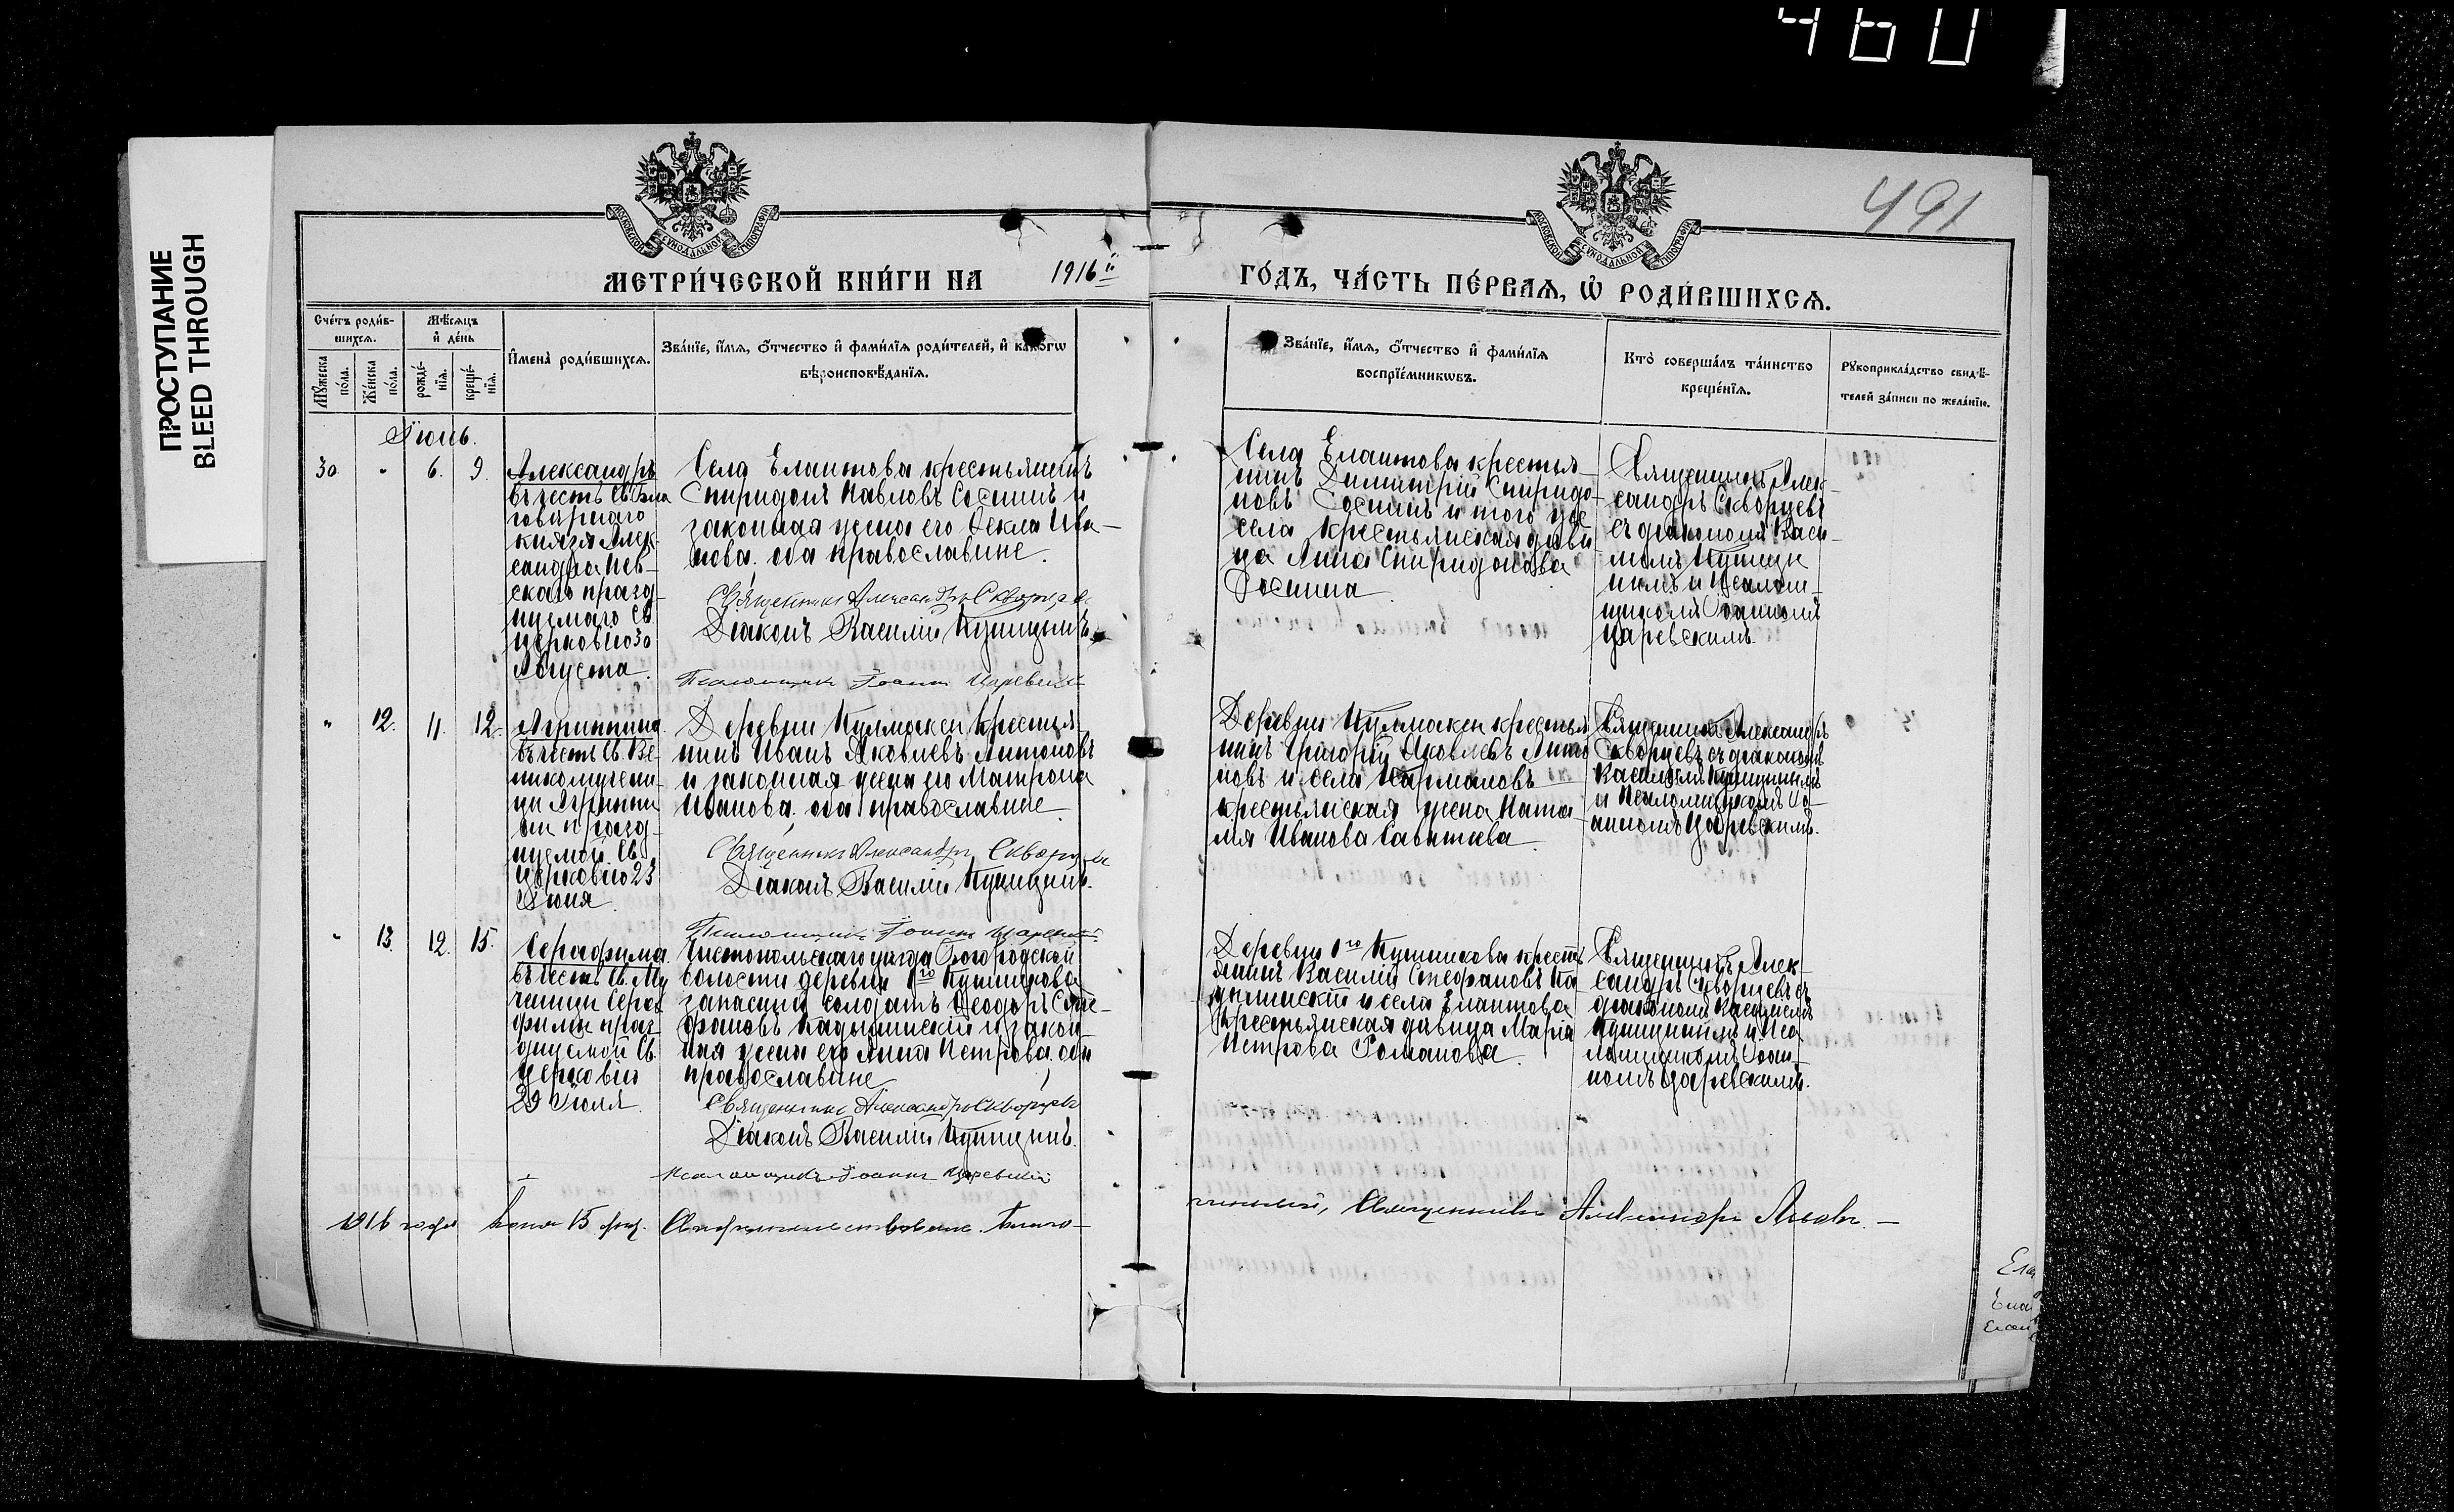 460
ПРОСТУПАНИЕ
BLEED THROUGH
491
МОСКОВСКОЙ СѴНОДАЛЬНОЙ ТИПОГРАФІИ
МОСКОВСКОЙ СѴНОДАЛЬНОЙ ТИПОГРАФІИ
МЕТРИ́ЧЕСКОЙ КНИ́ГИ НА 1916й ГО́ДЪ, ЧА́СТЬ ПЕ́РВАЯ, Ѡ҆ РОДИ́ВШИХСЯ.
Сче́тъ роди́в-
шихся.
Мѣ́сяцъ
и҆ де́нь
Мꙋ́жеска
по́ла.
Же́нска
по́ла.
рожде́-
нїя.
креще́-
нїя.
И҆мена̀ роди́вшихся.
Зва́нїе, и҆́мя, ѻ҆́тчество и҆ фами́лїя роди́телей, и҆ како́гѡ
вѣроисповѣ́данїя.
Зва́нїе, и҆́мя, ѻ҆́тчество и҆ фами́лїя
воспрїе́мникѡвъ.
Кто̀ соверша́лъ та́инство
креще́нїя.
Рꙋкоприкла́дство свидѣ́-
телей за́писи по жела́нїю.
Іюнь.
30. " 6. 9.
Александръ
въ честь Св. Бла
говѣрнаго
князя Алек-
сандра Нев-
скаго празд-
нуемаго Св.
церковію 30
Августа.
Села Елантова крестьянинъ
Спиридонъ Павловъ Сосинъ и
законная жена его Ѳекла Ива-
нова. оба православные.
Священникъ Александръ Скворцовъ
Діаконъ Василій Купицынъ.
Псаломщикъ Іоаннъ Царевскій
Села Елантова крестья-
нинъ Димитрій Спиридо-
новъ Сосинъ и того же
села крестьянская дѣви-
ца Анна Спиридонова
Сосина
Священникъ Алек-
сандръ Скворцевъ
съ діакономъ Васи-
ліемъ Купицы
нымъ и Псалом-
щикомъ Іоанномъ
Царевскимъ.
" 12. 11. 12.
Агриппина
въ честь Св. Ве-
ликомучени-
цы Агриппи
ны празд-
нуемой Св.
церковію 23
Іюня.
Деревни Кулмаксы крестья-
нинъ Иванъ Яковлевъ Антоновъ
и законная жена его Матрона
Иванова. оба православные.
Священникъ Александръ Скворцовъ
Діаконъ Василій Купицынъ.
Псаломщикъ Іоаннъ Царевскій.
Деревни Кулмаксы крестья
нинъ Григорій Яковлевъ Анто
новъ и села
крестьянская жена Ната-
лія Иванова
Священникъ Александръ
Скворцевъ съ діакономъ
Василіемъ Купицынымъ
и Псаломщикомъ Іо-
анномъ Царевскимъ.
" 13. 12. 15.
Серафима
въ честь Св. Му
ченицы Сера-
фимы праз-
днуемой Св.
церковію
29 Іюля.
Чистопольскаго уѣзда Богородской
волости деревни 1го
запасный солдатъ Ѳеодоръ Сте-
фановъ и закон-
ная жена его Анна Петрова. оба
православные.
Священникъ Александръ Скворцовъ
Діаконъ Василій Купицынъ.
Псаломщикъ Іоаннъ Царевскій
Деревни 1го крестъ
янинъ Василій Стефановъ
и села Елантова
крестьянская дѣвица Марія
Петрова Романова.
Священникъ Алек-
сандръ Скворцевъ съ
діакономъ Василіемъ
Купицынымъ и Пса
ломщикомъ Іоан-
номъ Царевскимъ.
1916 года Іюня 15 дня. Благо-
чинный, Священникъ Александръ